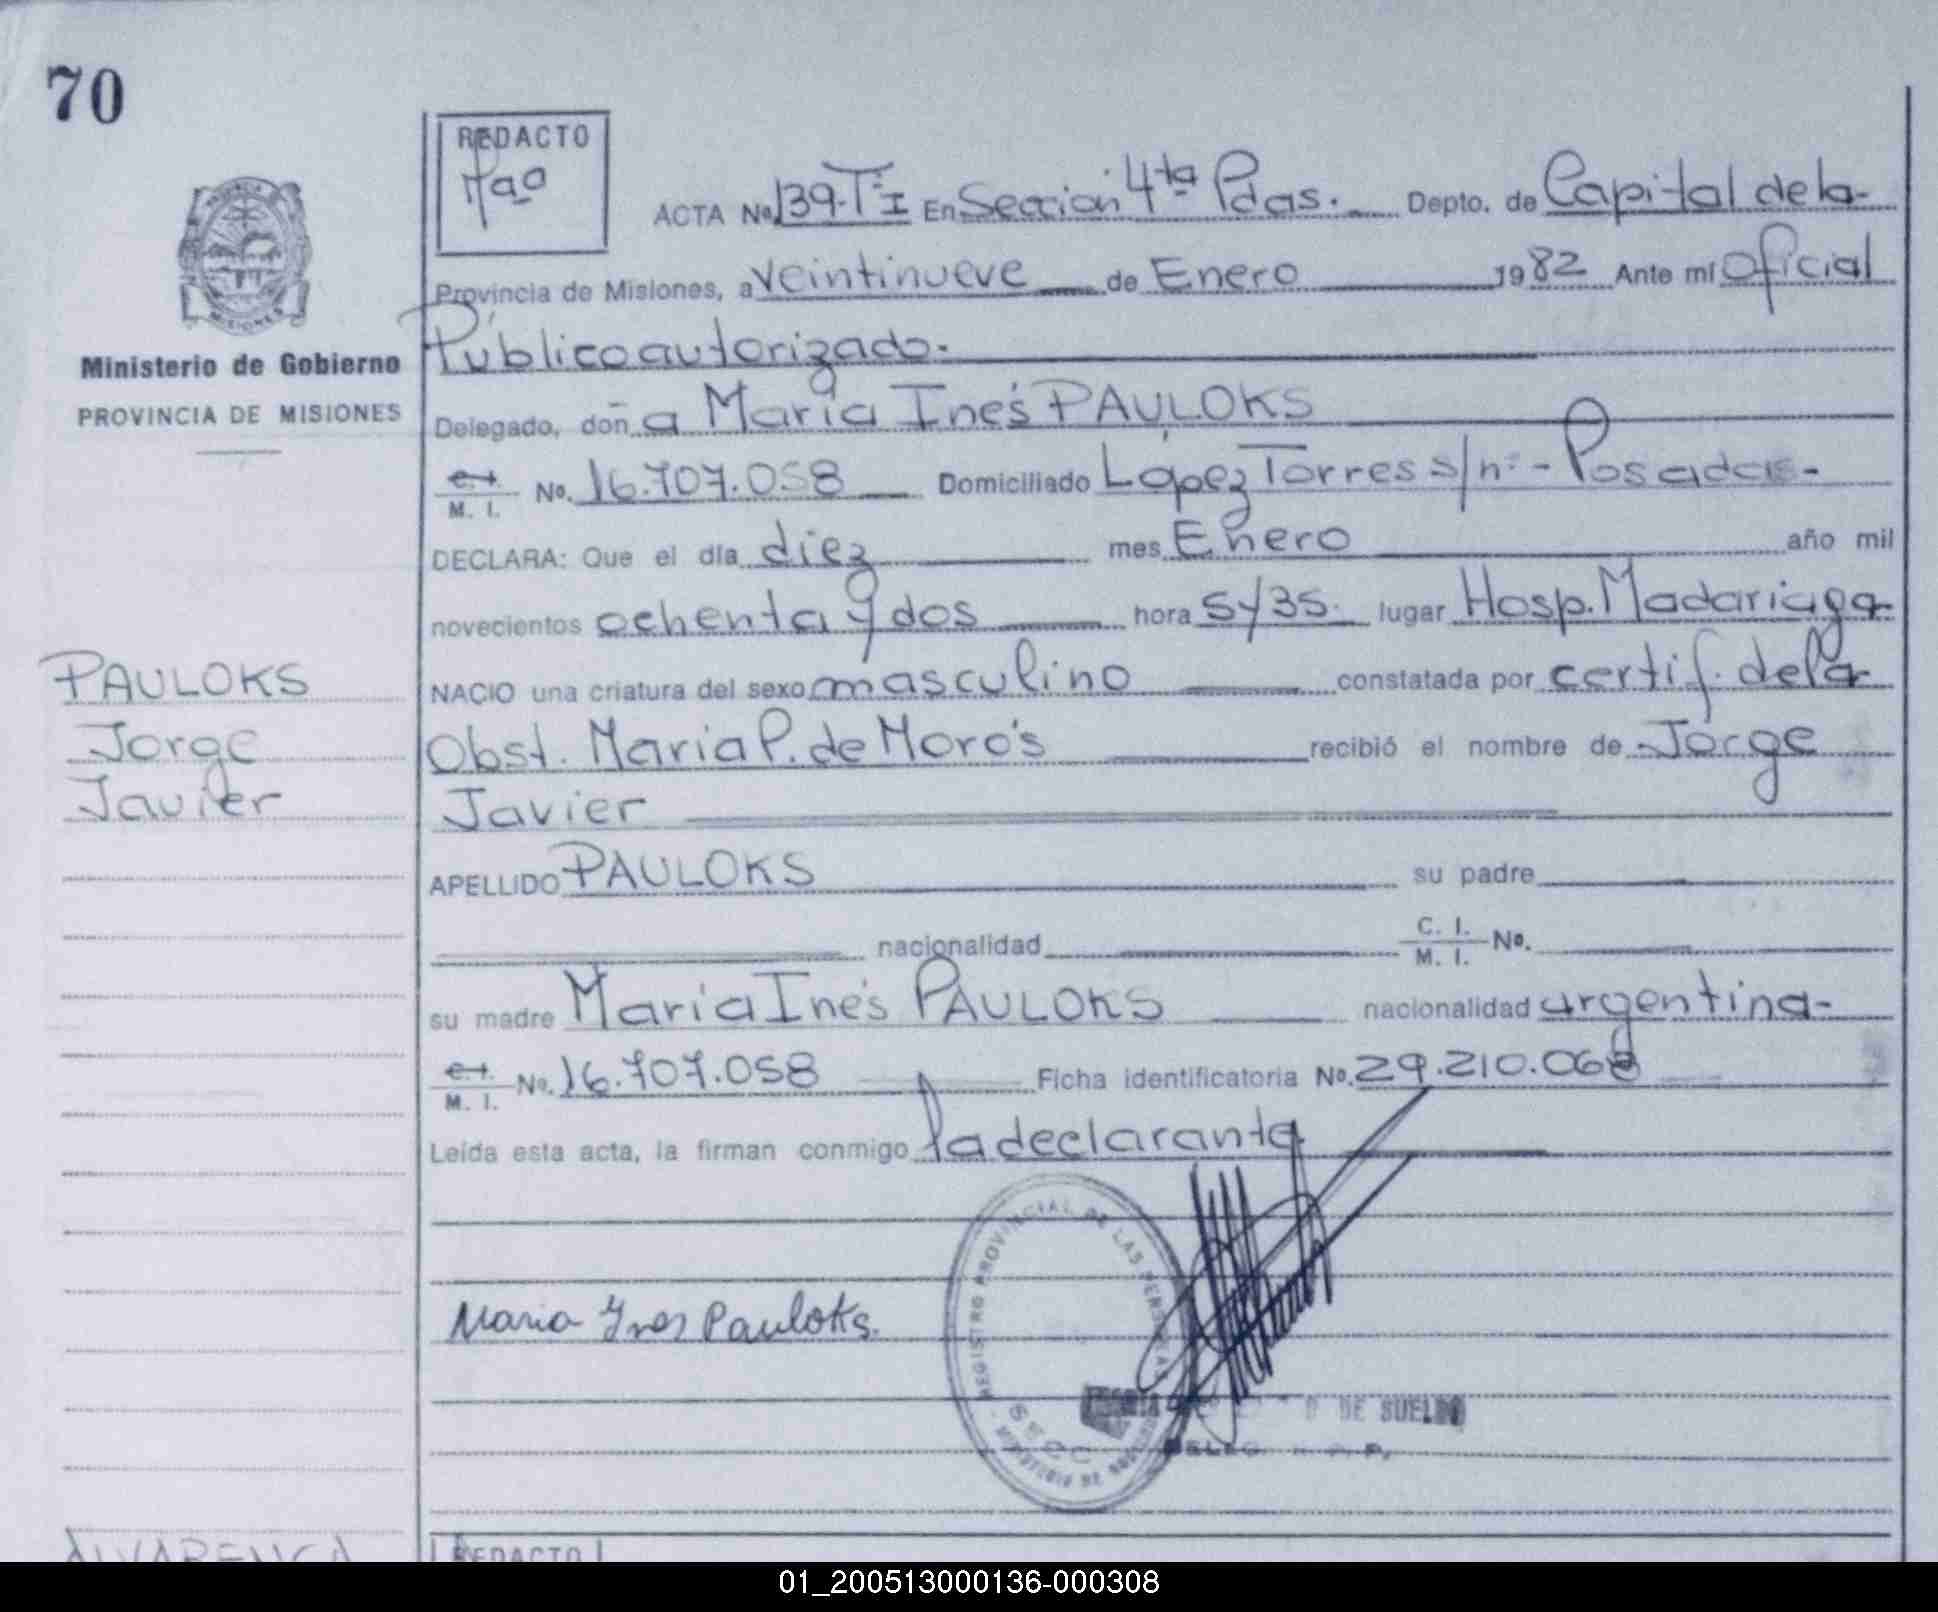 70
REDACTO
ACTA No. 139-Tº I En Sección 4ta Pdas. Depto. de Capital de la
Provincia de Misiones, a veintinueve de Enero 1982 Ante mí Oficial
Público autorizado.
Ministerio de Gobierno
PROVINCIA DE MISIONES
Delegado, doña María Inés PAULOKS
C. I.
M. I. No. 16.707.058 Domiciliado López Torres s/nº - Posadas-
DECLARA: Que el día diez mes Enero año mil
novecientos ochenta y dos hora 5y35. lugar Hosp. Madariaga
NACIO una criatura del sexo masculino constatada por certif. de la
Obst. Maria P. de Moro's recibió el nombre de Jorge
Javier
PAULOKS
Jorge
Javier
APELLIDO PAULOKS su padre
nacionalidad C. I.
M. I. No.
su madre María Inés PAULOKS nacionalidad argentina-
C. I.
M. I. No. 16.707.058 Ficha identificatoria No. 29.210.068
Leída esta acta, la firman conmigo la declarante
REGISTRO PROVINCIAL DE LAS PERSONAS
Maria Ines Pauloks.
DE SUELDO
ALVARENGA
REDACTO
01_200513000136-000308